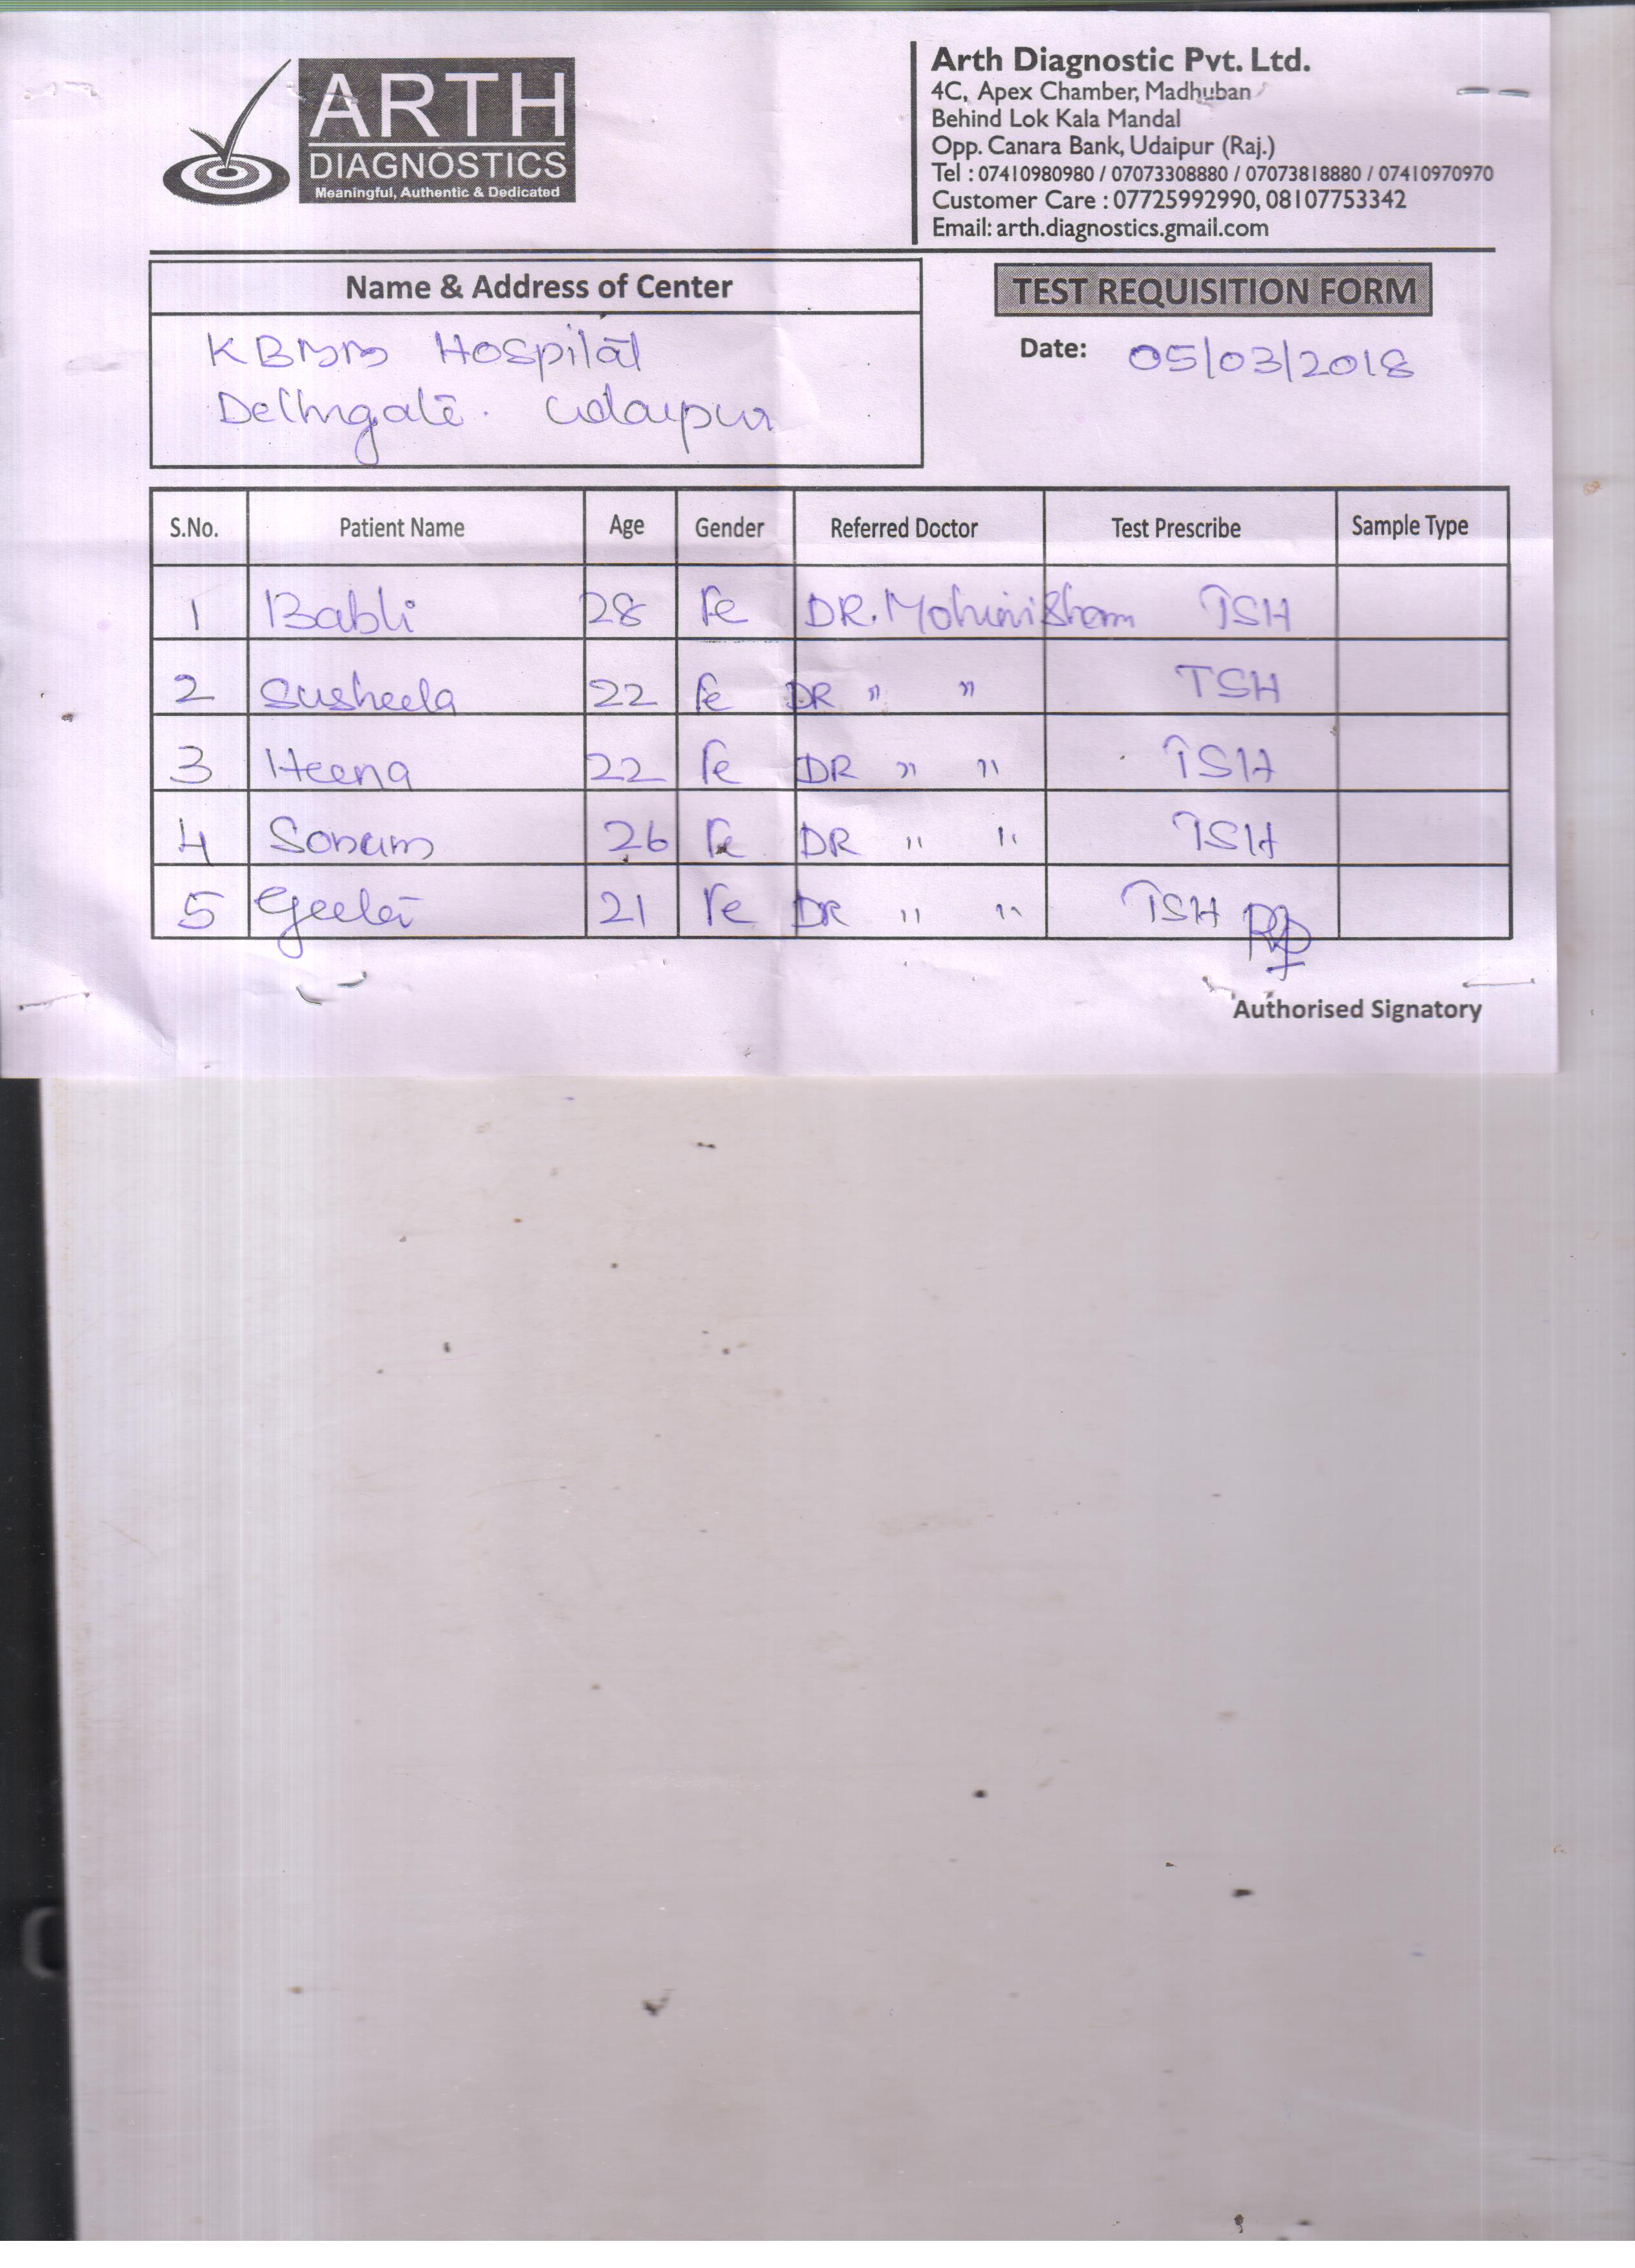 ARTH
DIAGNOSTICS
Meaningful, Authentic & Dedicated
Arth Diagnostic Pvt. Ltd.
4C, Apex Chamber, Madhuban
Behind Lok Kala Mandal
Opp. Canara Bank, Udaipur (Raj.)
Tel : 07410980980 / 07073308880 / 07073818880 / 07410970970
Customer Care : 07725992990, 08107753342
Email: arth.diagnostics.gmail.com
Name & Address of Center
TEST REQUISITION FORM
Hospital
Delhigate. Udaipur
Date: 05/03/2018
S.No. Patient Name Age Gender Referred Doctor Test Prescribe Sample Type
1 Babli 28 Fe DR. Mohini TSH
2 Susheela 22 Fe DR " " TSH
3 Heena 22 Fe DR " " TSH
4 Sonam 26 Fe DR " " TSH
5 Geeta 21 Fe DR " " TSH
Authorised Signatory